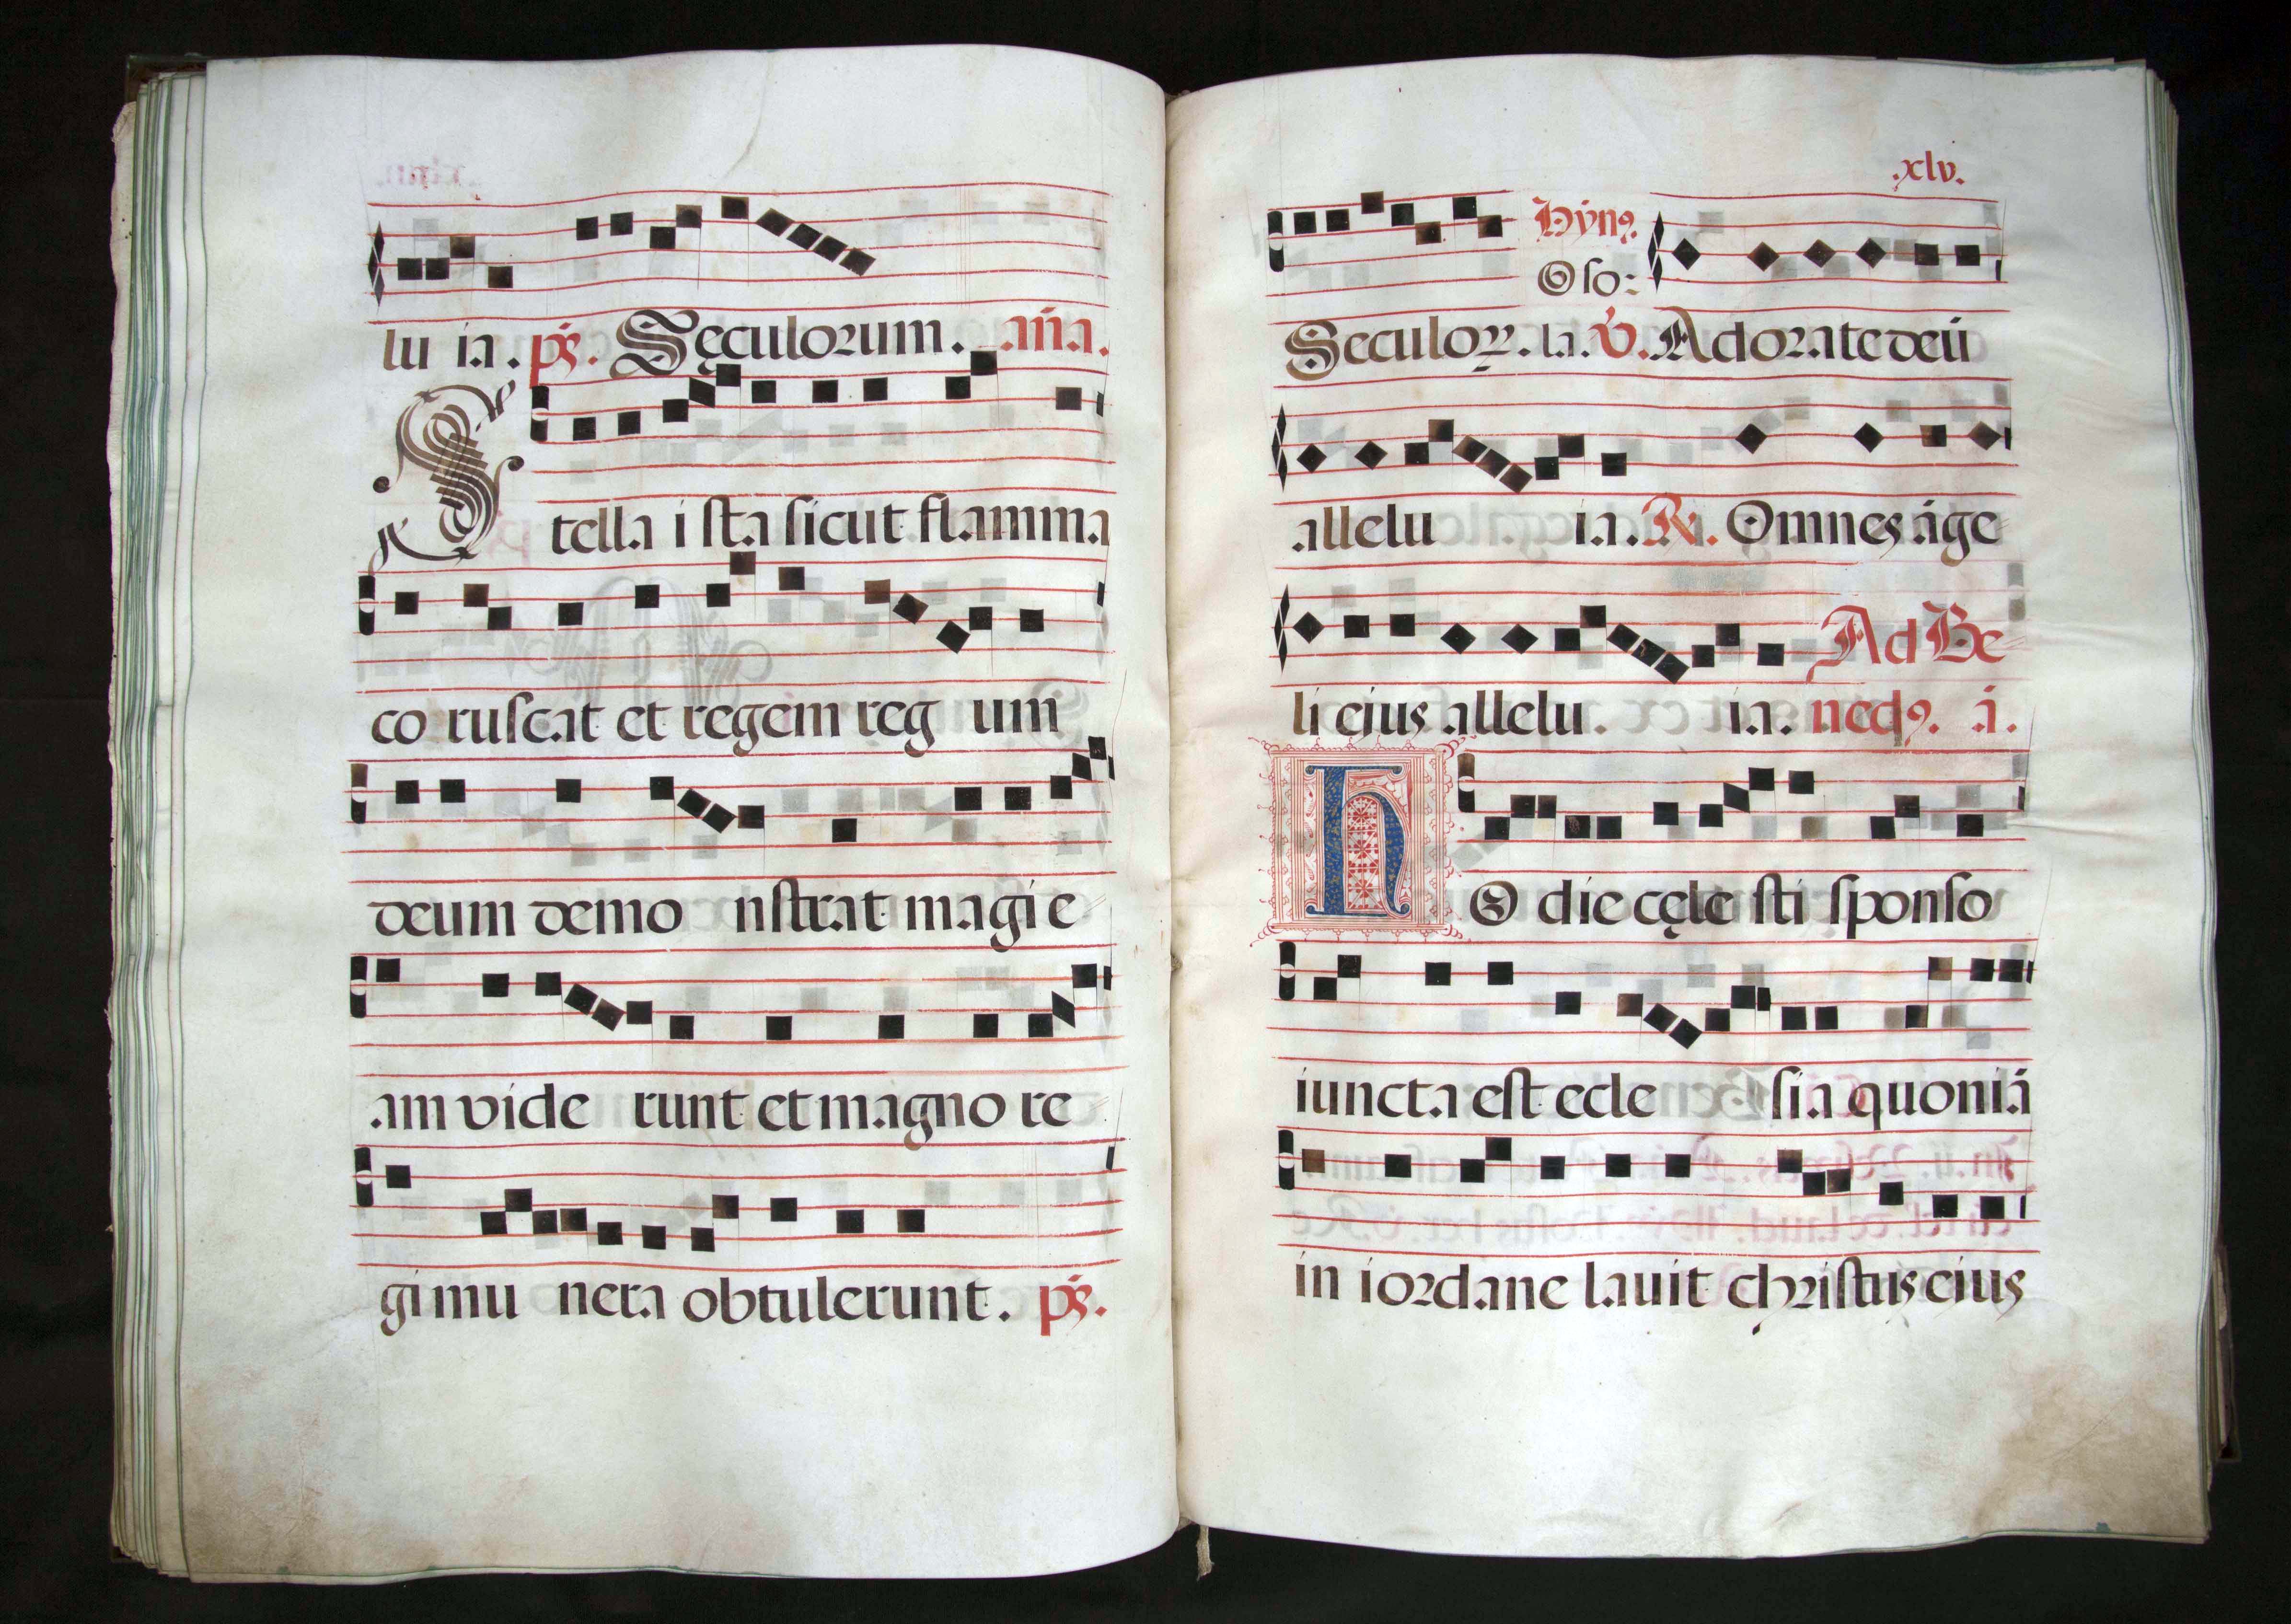 lu ia. ps. Seculorum. añа.
Stella ista sicut flamma
co ruscat et regem reg um
deum demo nstrat magi e
am vide runt et magno re
gi mu nera obtulerunt. ps.
.xlv.
Hyn9.
O so:
Seculoꝝ. la. ℣. Adorate deū
allelu ia. ℟. Omnes áge
li eius allelu. ia. Ad Be
ned9. á.
hO die cęle sti sponso
iuncta est ecle sia quoniā
in iordane lauit christus eius